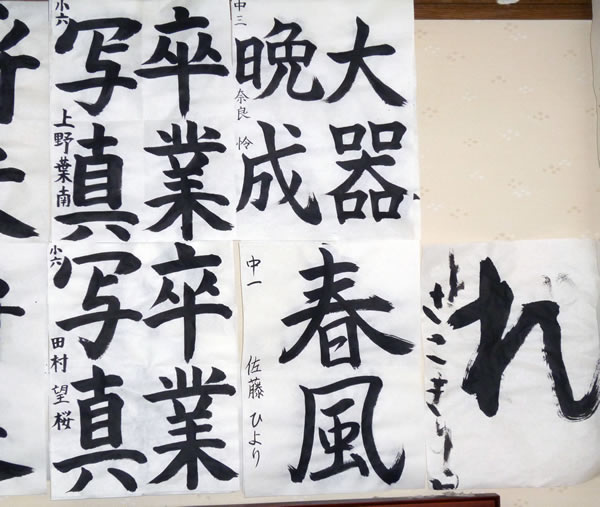 大器
晩成
中三
奈良 怜
卒業
写真
小六
上野葉南
春風
中一
佐藤 ひより
卒業
写真
小六
田村 望桜
れ